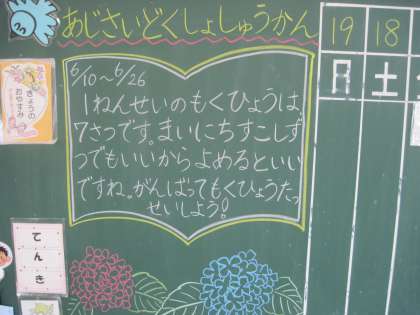 あじさいどくしょしゅうかん
6/10〜6/26
1ねんせいのもくひょうは、
7さつです。まいにちすこしず
つでもいいからよめるといい
ですね。がんばってもくひょうたっ
せいしよう!
19
18
月
土
きょうの
おやすみ
てんき